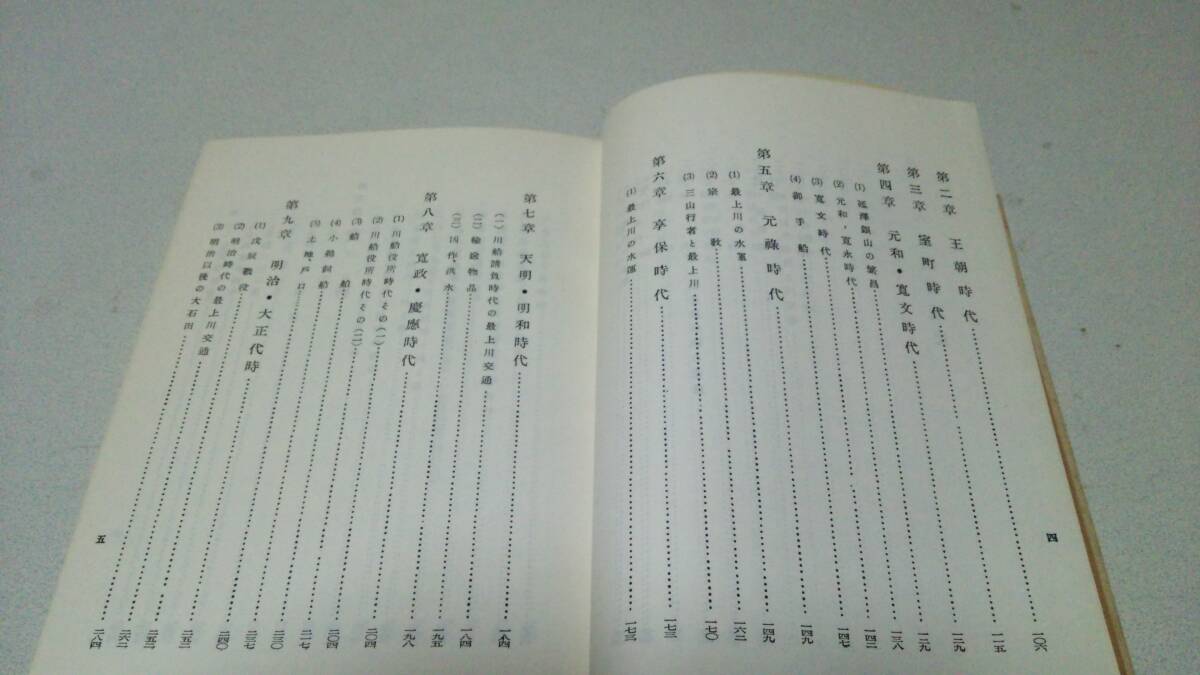 四
第二章 王朝時代……一〇六
第三章 室町時代……一一五
第四章 元和・寛文時代……一二九
(1) 延澤銀山の繁昌……一二九
(2) 元和,寛永時代……一三八
(3) 寛文時代……一四二
(4) 御手船……一四七
第五章 元祿時代……一四九
(1) 最上川の水運……一四九
(2) 宗教……一六二
(3) 三山行者と最上川……一七〇
第六章 享保時代……一七三
(1) 最上川の水運……一七三
第七章 天明・明和時代……一八四
(一) 川船請負時代の最上川交通……一八四
(二) 輸送物品……一九五
(三) 凶作、洪水……一九八
第八章 寛政・慶應時代……二〇四
(1) 川船役所時代その(一)……二〇四
(2) 川船役所時代その(二)……二一七
(3) 船舶……二三〇
(4) 小鵜飼船……二三七
(5) 戸口……二四〇
第九章 明治・大正代時……二五二
(1) 戊辰戰役……二五二
(2) 明治時代の最上川交通……二六二
(3) 明治以後の大石田……二八四
五